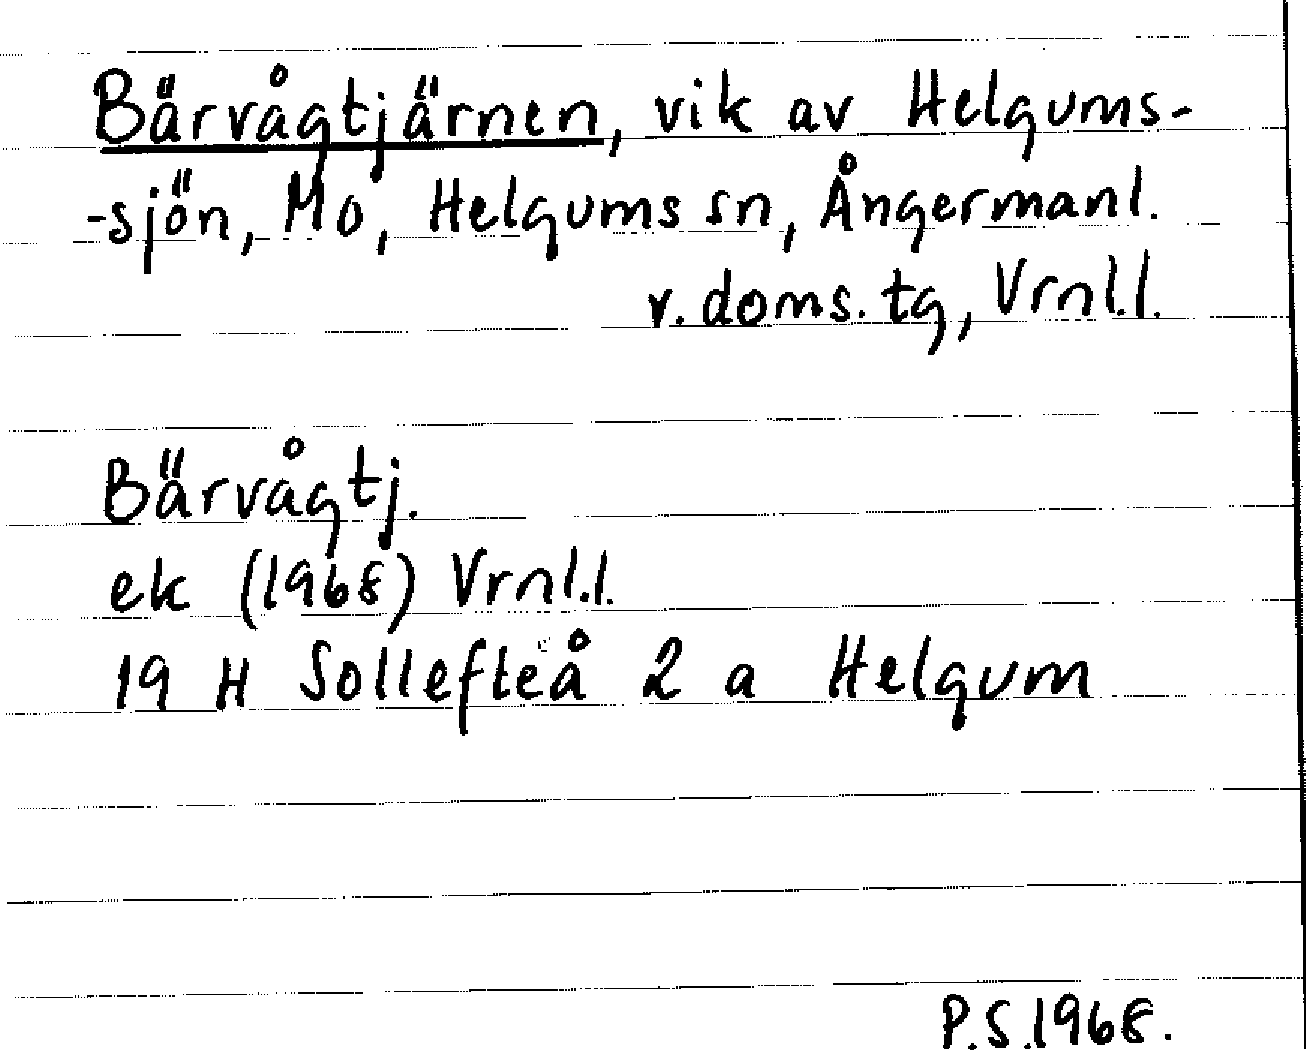 Bärvågtjärnen, vik av Helgums-
-sjön, Mo, Helgums sn, Ångermanl.
v. doms. tg, Vrnl.l.
Bärvågtj.
ek (1968) Vrnl.l.
19 H Sollefteå 2 a Helgum
P.S.1968.